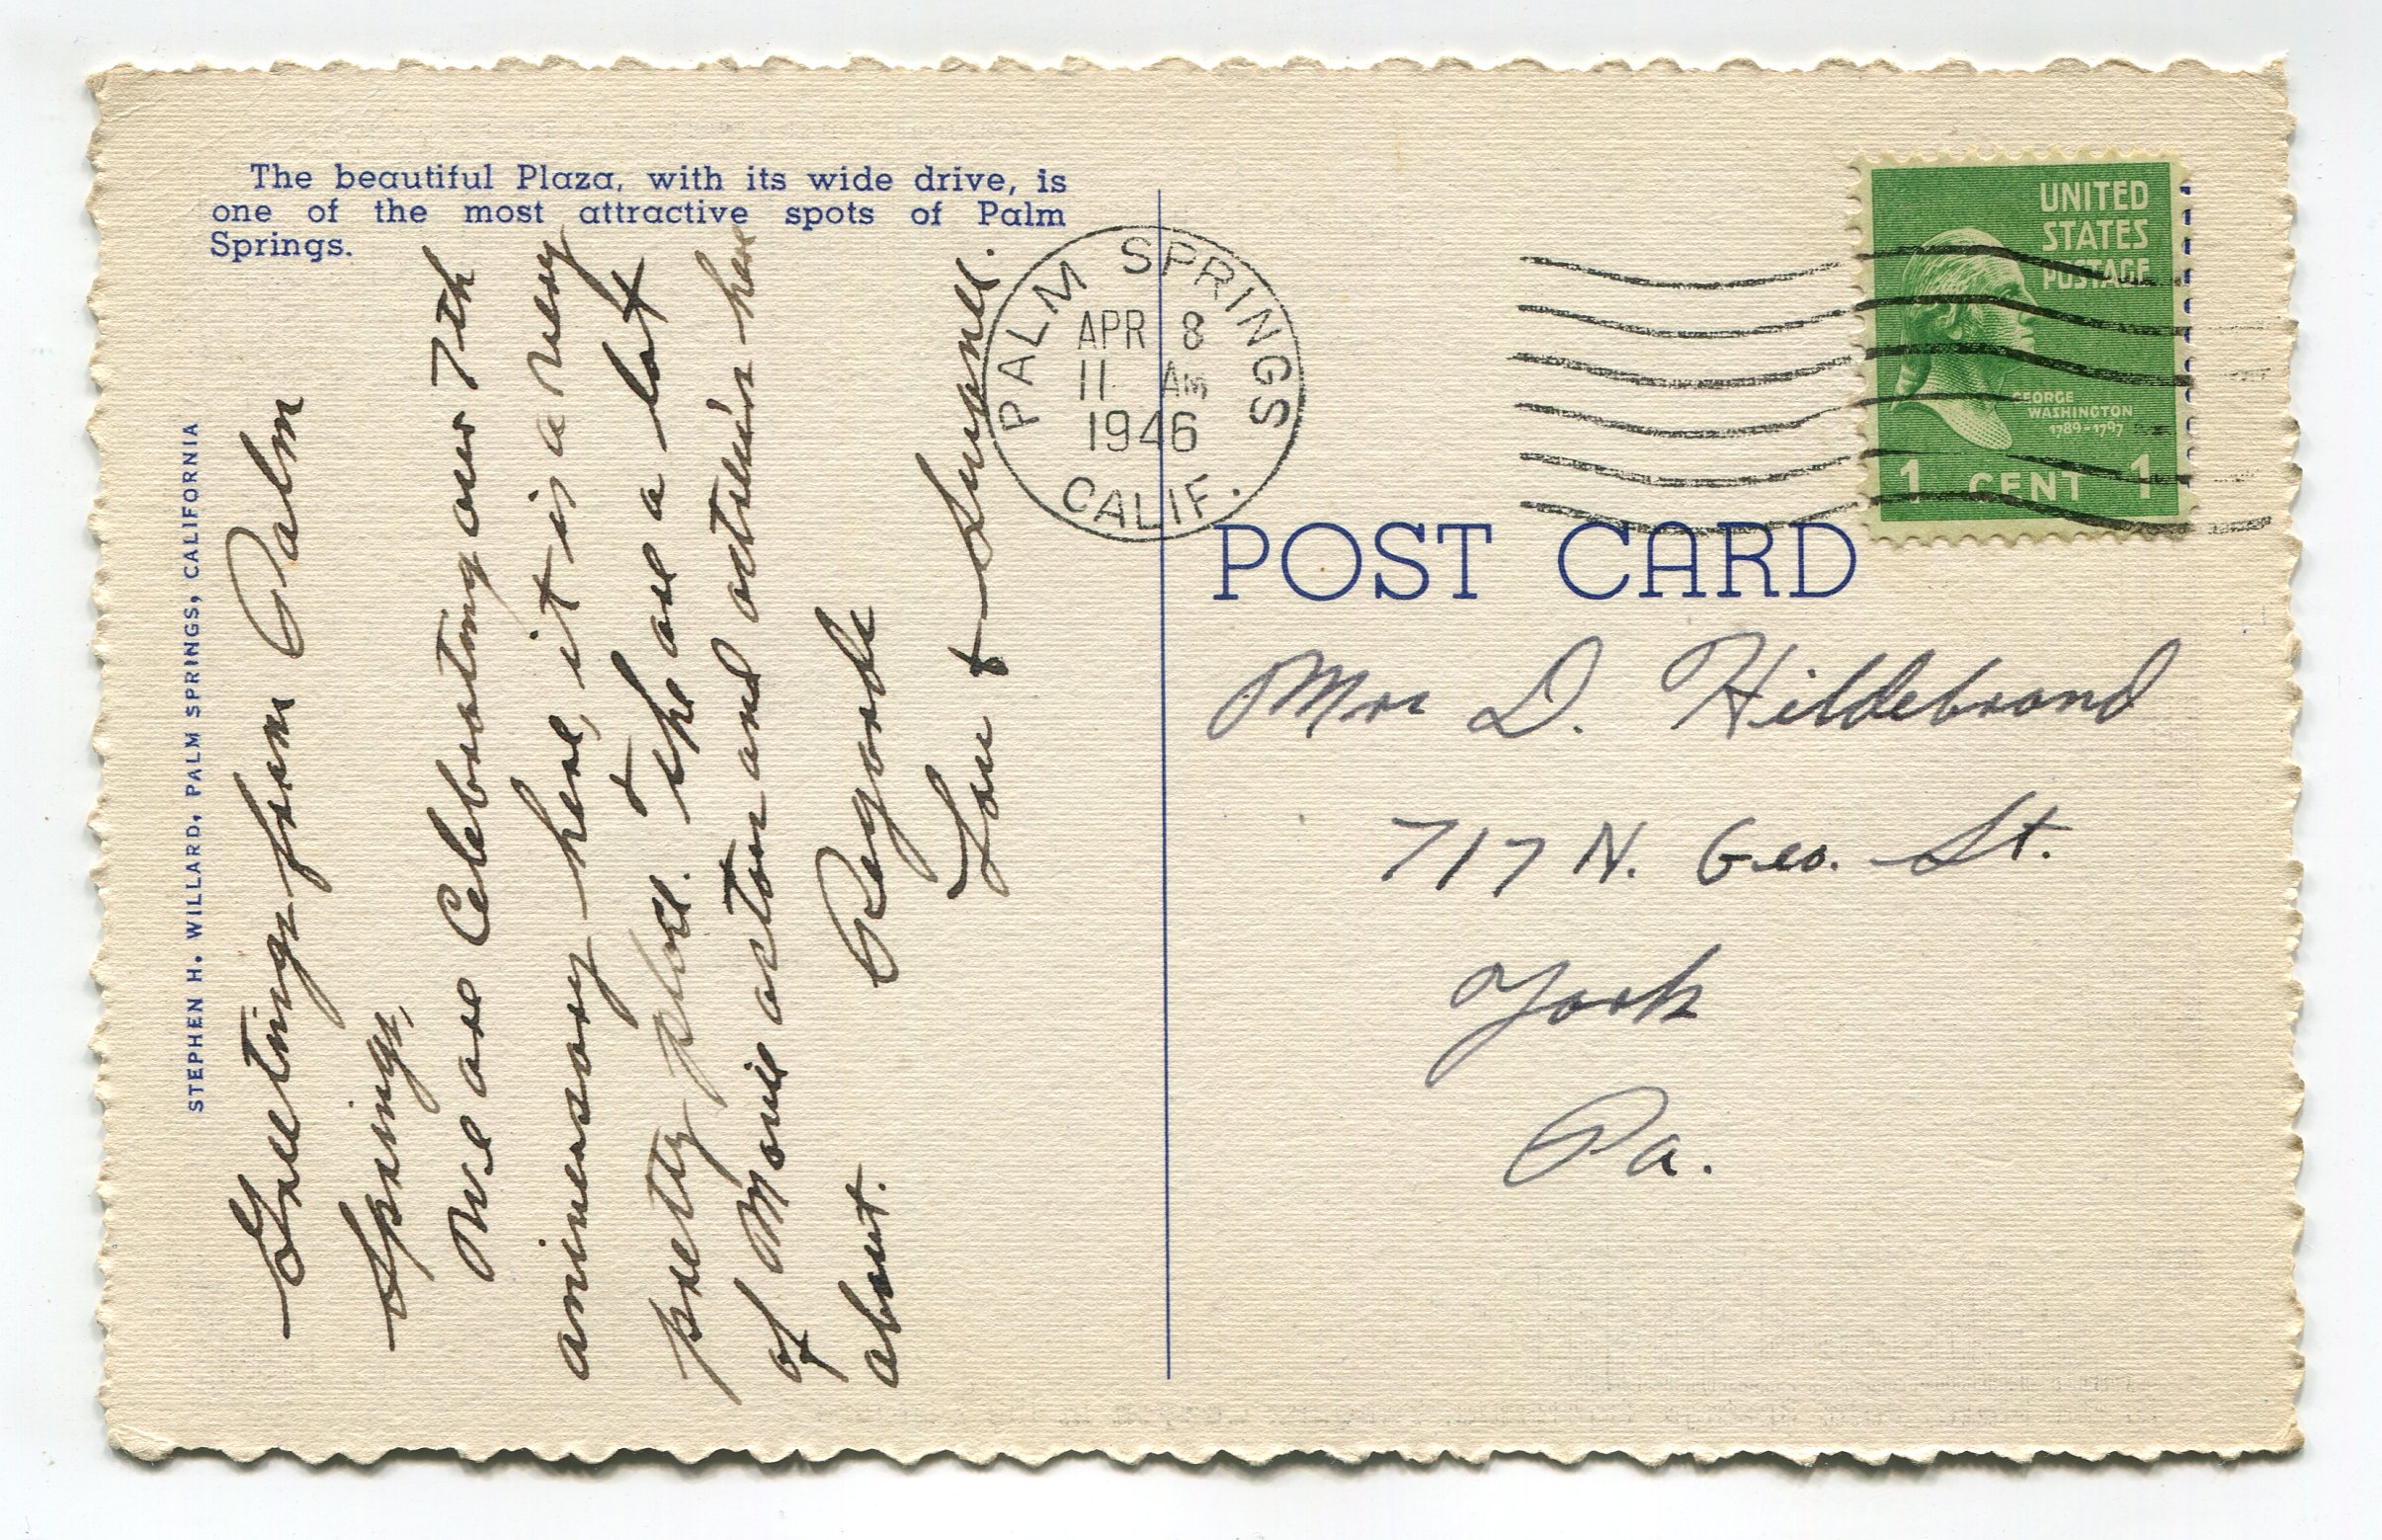 The beautiful Plaza, with its wide drive, is
one of the most attractive spots of Palm
Springs.
STEPHEN H. WILLARD, PALM SPRINGS, CALIFORNIA
Greetings from Palm
Springs,
We are Celebrating our 7th
aniversary here, it is a very
pretty place. + the are a lot
of Movie actors and here
about.
Regards
Lou +
PALM SPRINGS
APR 8
11 AM
1946
CALIF.
UNITED
STATES
POSTAGE
GEORGE
WASHINGTON
1789-1797
1 CENT 1
POST CARD
Mrs D. Hildebrand
717 N. Geo. St.
York
Pa.